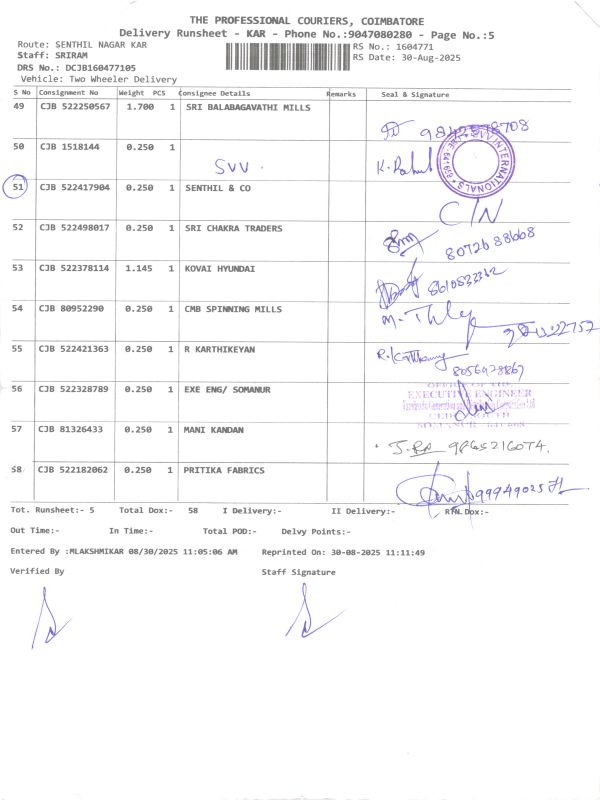 THE PROFESSIONAL COURIERS, COIMBATORE
Delivery Runsheet - KAR - Phone No.:9047080280 - Page No.:5
Route: SENTHIL NAGAR KAR RS No.: 1604771
Staff: SRIRAM RS Date: 30-Aug-2025
DRS No.: DCJB160477105
Vehicle: Two Wheeler Delivery
S No Consignment No Weight PCS Consignee Details Remarks Seal & Signature
49 CJB 522250567 1.700 1 SRI BALABAGAVATHI MILLS
50 CJB 1518144 0.250 1 SVV. K. Rahul
51 CJB 522417904 0.250 1 SENTHIL & CO C/N
52 CJB 522498017 0.250 1 SRI CHAKRA TRADERS 8072688668
53 CJB 522378114 1.145 1 KOVAI HYUNDAI
54 CJB 80952290 0.250 1 CMB SPINNING MILLS
55 CJB 522421363 0.250 1 R KARTHIKEYAN
56 CJB 522328789 0.250 1 EXE ENG/ SOMANUR
OFFICE OF THE
EXECUTIVE ENGINEER
57 CJB 81326433 0.250 1 MANI KANDAN 9865216074.
58 CJB 522182062 0.250 1 PRITIKA FABRICS
Tot. Runsheet:- 5 Total Dox:- 58 I Delivery:- II Delivery:- RTN.Dox:-
Out Time:- In Time:- Total POD:- Delvy Points:-
Entered By :MLAKSHMIKAR 08/30/2025 11:05:06 AM Reprinted On: 30-08-2025 11:11:49
Verified By Staff Signature